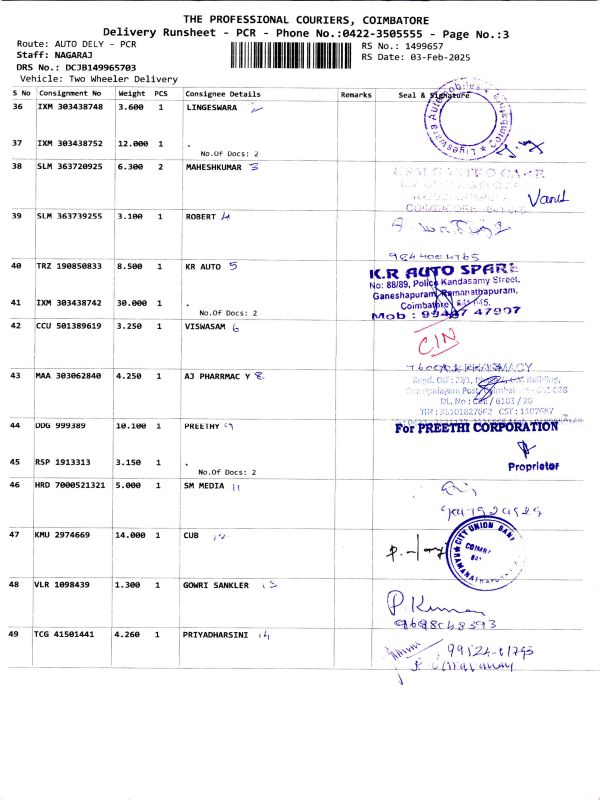 THE PROFESSIONAL COURIERS, COIMBATORE
Delivery Runsheet - PCR - Phone No.:0422-3505555 - Page No.:3
Route: AUTO DELY - PCR RS No.: 1499657
Staff: NAGARAJ RS Date: 03-Feb-2025
DRS No.: DCJB149965703
Vehicle: Two Wheeler Delivery
S No Consignment No Weight PCS Consignee Details Remarks Seal & Signature
36 IXM 303438748 3.600 1 LINGESWARA 2
37 IXM 303438752 12.000 1 .
No.Of Docs: 2
38 SLM 363720925 6.300 2 MAHESHKUMAR 3
39 SLM 363739255 3.100 1 ROBERT 4
40 TRZ 190850833 8.500 1 KR AUTO 5
K.R AUTO SPARE
No: 88/89, Police Kandasamy Street,
Ganeshapuram, Ramanathapuram,
41 IXM 303438742 30.000 1 .
No.Of Docs: 2
Mob : 47907
42 CCU 501389619 3.250 1 VISWASAM 6
CIN
43 MAA 303062840 4.250 1 AJ PHARRMAC Y 8
44 DDG 999389 10.100 1 PREETHY 9
For PREETHI CORPORATION
45 RSP 1913313 3.150 1 .
No.Of Docs: 2
Proprietor
46 HRD 7000521321 5.000 1 SM MEDIA 11
47 KMU 2974669 14.000 1 CUB
CITY UNION BANK
48 VLR 1098439 1.300 1 GOWRI SANKLER
P. Kumar
49 TCG 41501441 4.260 1 PRIYADHARSINI 14